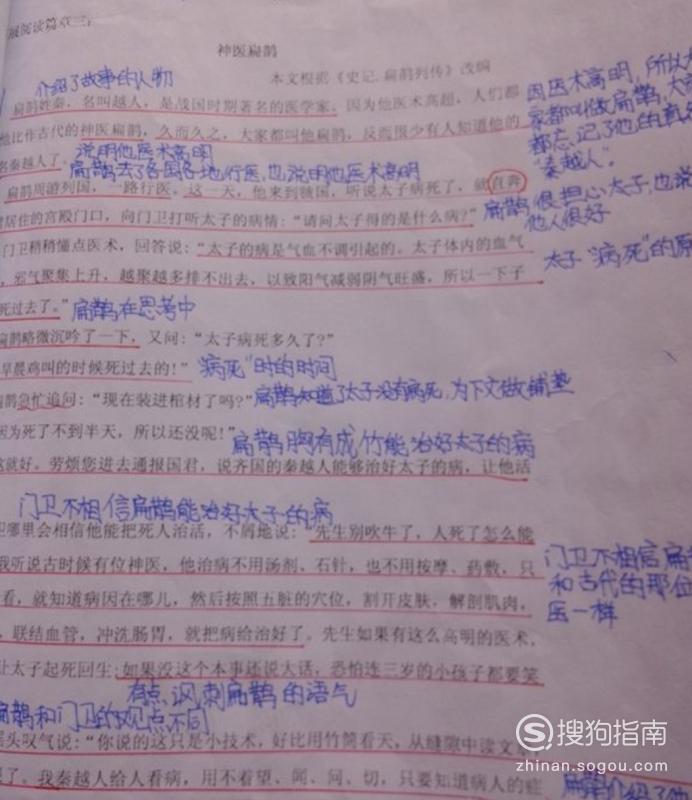 展阅读篇章三:
神医扁鹊
介绍了故事的人物
本文根据《史记.扁鹊列传》改编
扁鹊姓秦，名叫越人，是战国时期著名的医学家。因为他医术高超，人们都
因医术高明，所以大
家都叫做扁鹊，大家
都忘记了他的真名
"秦越人"。
他比作古代的神医扁鹊，久而久之，大家都叫他扁鹊，反而很少有人知道他的
名秦越人了。
说明他医术高明
扁鹊去了各国各地行医，也说明他医术高明
扁鹊周游列国，一路行医。这一天，他来到虢国，听说太子病死了，就直奔
扁鹊很担心太子，也说
他人很好
居住的宫殿门口，向门卫打听太子的病情："请问太子得的是什么病？"
门卫稍稍懂点医术，回答说："太子的病是气血不调引起的。太子体内的血气
太子"病死"的原
，邪气聚集上升，越聚越多排不出去，以致阳气减弱阴气旺盛，所以一下子
死过去了。"
扁鹊在思考中
扁鹊略微沉吟了一下，又问："太子病死多久了？"
早晨鸡叫的时候死过去的！"
"病死"时的时间
扁鹊急忙追问："现在装进棺材了吗？"
扁鹊知道了太子没有病死，为下文做铺垫
因为死了不到半天，所以还没呢！"
扁鹊胸有成竹能治好太子的病
这就好。劳烦您进去通报国君，说齐国的秦越人能够治好太子的病，让他活
门卫不相信扁鹊能治好太子的病
卫哪里会相信他能把死人治活，不屑地说："先生别吹牛了，人死了怎么能
门卫不相信扁
和古代的那位
医一样
我听说古时候有位神医，他治病不用汤剂、石针，也不用按摩、药敷，只
看，就知道病因在哪儿，然后按照五脏的穴位，割开皮肤，解剖肌肉，
，联结血管，冲洗肠胃，就把病给治好了。先生如果有这么高明的医术，
让太子起死回生；如果没这个本事还说大话，恐怕连三岁的小孩子都要笑
有点讽刺扁鹊的语气
扁鹊和门卫的观点不同
摇头叹气说："你说的这只是小技术，好比用竹筒看天，从缝隙中读文章
了。我秦越人给人看病，用不着望、闻、问、切，只要知道病人的症
扁鹊介绍了他
S 搜狗指南
zhinan.sogou.com